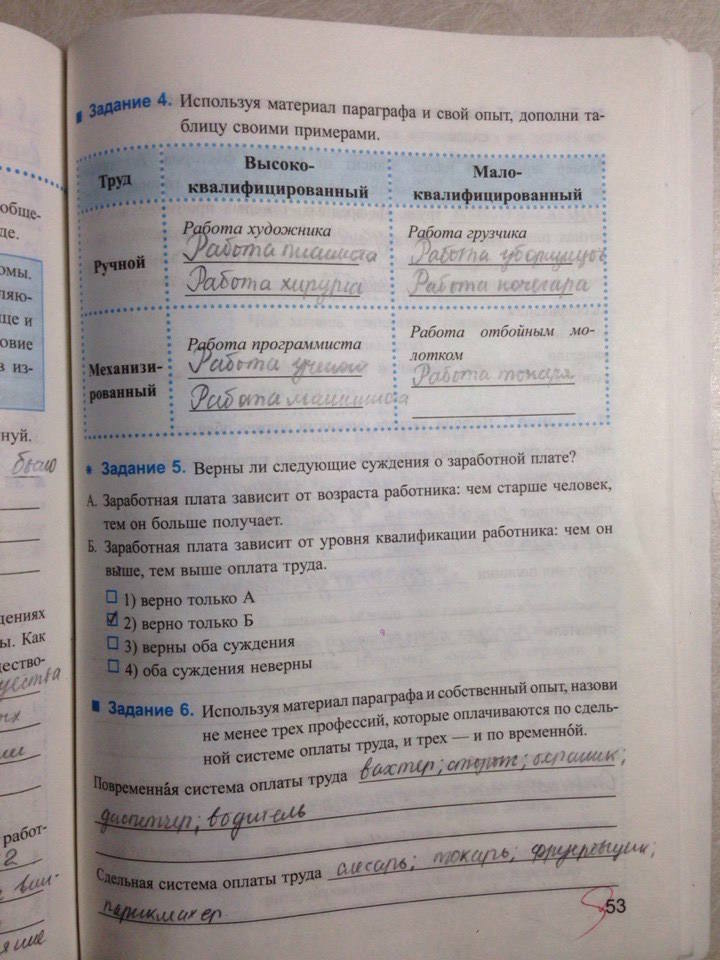 Задание 4. Используя материал параграфа и свой опыт, дополни та-
блицу своими примерами.
Труд
Высоко-
квалифицированный
Мало-
квалифицированный
Ручной
Работа художника
Работа пианиста
Работа хирурга
Работа грузчика
Работа уборщицов
Работа кочегара
Механизи-
рованный
Работа программиста
Работа ученого
Работа машиниста
Работа отбойным мо-
лотком
Работа токаря
Задание 5. Верны ли следующие суждения о заработной плате?
А. Заработная плата зависит от возраста работника: чем старше человек,
тем он больше получает.
Б. Заработная плата зависит от уровня квалификации работника: чем он
выше, тем выше оплата труда.
1) верно только А
2) верно только Б
3) верны оба суждения
4) оба суждения неверны
Задание 6. Используя материал параграфа и собственный опыт, назови
не менее трех профессий, которые оплачиваются по сдель-
ной системе оплаты труда, и трех — и по временно́й.
Повременна́я система оплаты труда вахтер; сторож; охранник;
диспетчер; водитель
Сдельная система оплаты труда слесарь; токарь;
парикмахер
53
обще-
де.
омы.
ляю-
ще и
овие
в из-
нуй.
было
дениях
ы. Как
щество-
щества
ых
работ-
2